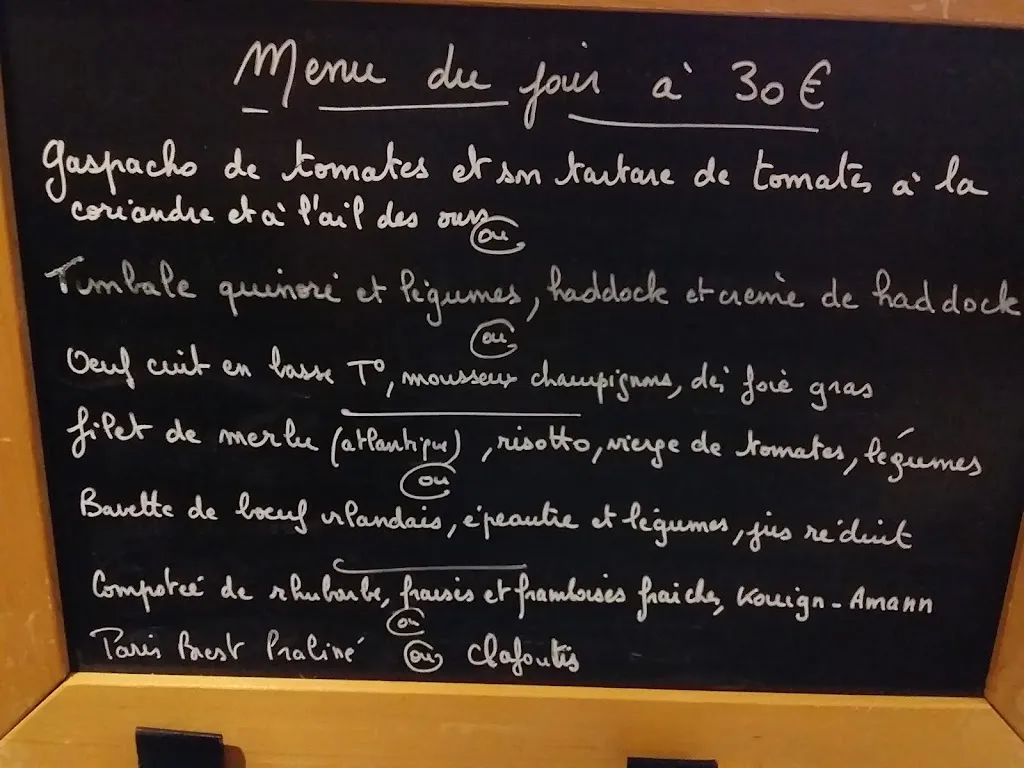 Menu du jour à 30€
Gaspacho de tomates et son tartare de tomates à la
coriandre et à l'ail des ours
ou
Timbale quinori et légumes, haddock et crème de haddock
ou
Oeuf cuit en basse T°, mousseux champignons, dés foie gras
filet de merlu (atlantique), risotto, vierge de tomates, légumes
ou
Bavette de bœuf irlandais, épeautre et légumes, jus réduit
Compotée de rhubarbe, fraises et framboises fraiches, Kouign-Amann
ou
Paris Brest Praliné ou Clafoutis